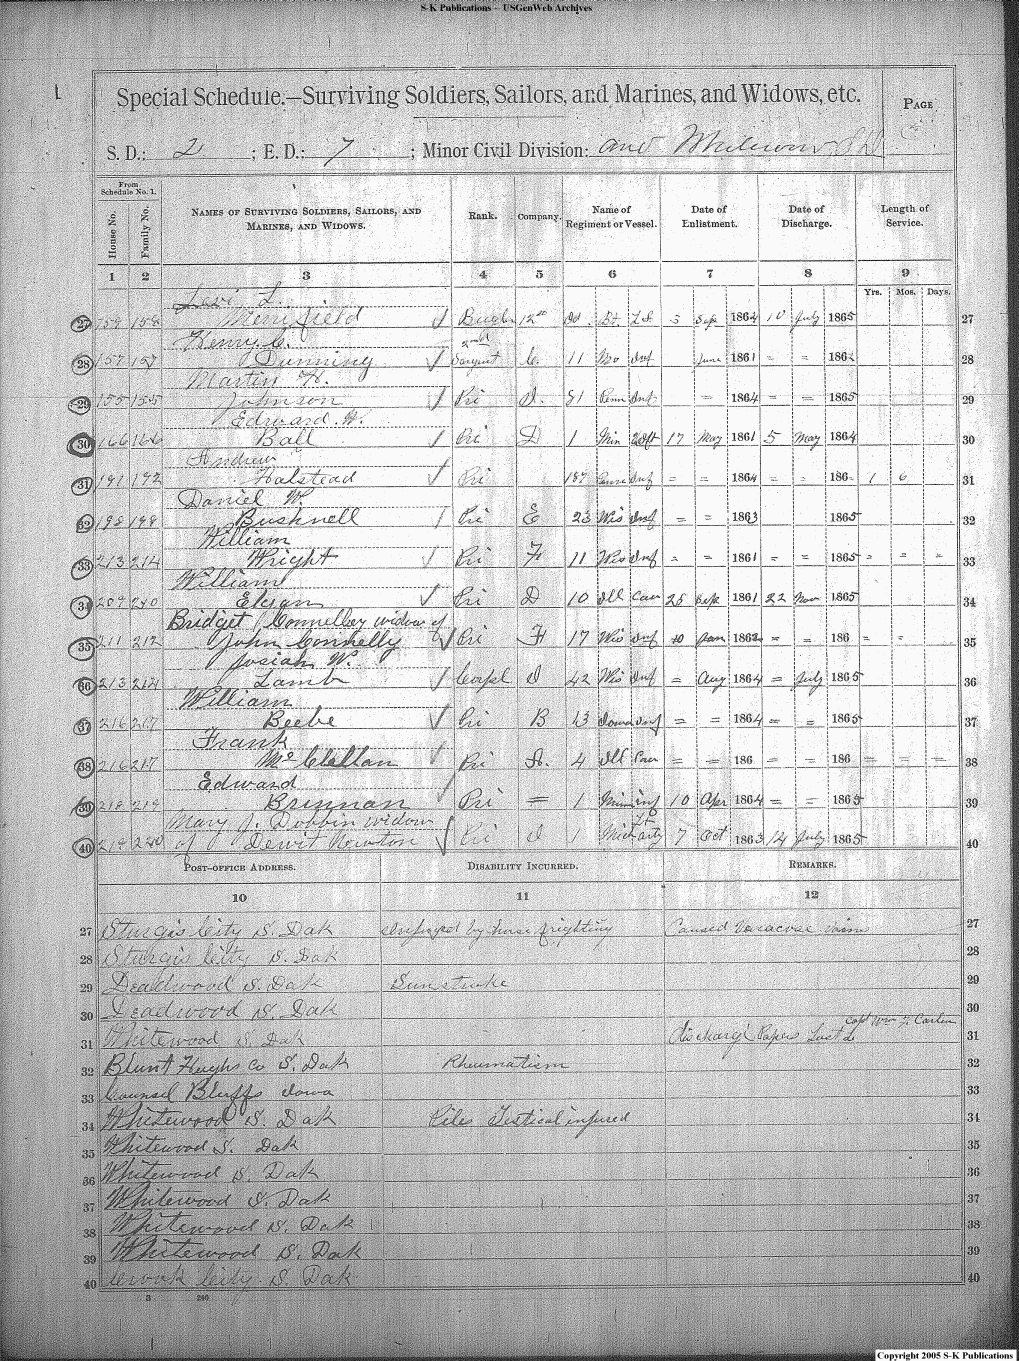 S-K Publications – USGenWeb Archives
Special Schedule.—Surviving Soldiers, Sailors, and Marines, and Widows, etc.
PAGE
S. D.: 2 ; E. D.: 7 ; Minor Civil Division: and Whitewood S D
From Schedule No. 1.
House No. Family No. NAMES OF SURVIVING SOLDIERS, SAILORS, AND MARINES, AND WIDOWS. Rank. Company. Name of Regiment or Vessel. Date of Enlistment. Date of Discharge. Length of Service.
1 2 3 4 5 6 7 8 9
Yrs. Mos. Days.
Levi L.
27 159 158 Merrifield Bugler 12th Bt. 3 Sep 1864 10 July 1865 27
Henry C. 2nd
28 157 157 Dunning Sargent C. 11 Mo Inf June 1861 = = 1862 28
Martin H.
29 155 155 Johnson Pri 81 Penn Inf = 1864 = = 1865 29
Edward W.
30 166 166 Ball Pri D 1 Min 17 May 1861 5 May 1864 30
Andrew
31 191 192 Halstead Pri 187 Penna Inf = = 1864 = = 186 1 6 31
Daniel W.
32 198 199 Bushnell Pri E 23 Wis Inf = = 1863 1865 32
William
33 213 214 Wright Pri F 11 Wis Inf = = 1861 = = 1865 = = = 33
William
34 209 210 Pri D 10 Ill Cav 25 Sep 1861 22 Nov 1865 34
Bridget Connelley widow of
35 211 212 John Connelly Pri H 17 Wis Inf 10 Jan 1862 = = 186 = = 35
Josiah W.
36 213 214 Lamb Corpl I 42 Wis Inf = Aug 1864 = July 1865 36
William
37 216 217 Beebe Pri B 13 Iowa Inf = = 1864 = = 1865 37
Frank
38 216 217 McClellan Pri A. 4 Ill Cav = = 186 = = 186 = = = 38
Edward
39 218 219 Brennan Pri = 1 Minn inf 10 Apr 1864 = = 1865 39
Mary J. Dobbin widow Lt
40 219 220 of Dewit Newton Pri I 1 Mich arty 7 Oct 1863 14 July 1865 40
POST-OFFICE ADDRESS. DISABILITY INCURRED. REMARKS.
10 11 12
27 Sturgis City S. Dak by horse frighting Caused vains 27
28 Sturgis City S. Dak 28
29 Deadwood S. Dak Sunstroke 29
30 Deadwood S. Dak 30
Capt Wm F. Carlin
31 Whitewood S. Dak Discharge Papers Lost 31
32 Blunt Hughs Co S. Dak Rheumatism 32
33 Counsel Bluffs Iowa 33
34 Whitewood S. Dak Piles Testical injured 34
35 Whitewood S. Dak 35
36 Whitewood S. Dak 36
37 Whitewood S. Dak 37
38 Whitewood S. Dak 38
39 Whitewood S. Dak 39
40 City S. Dak 40
3 240
Copyright 2005 S-K Publications